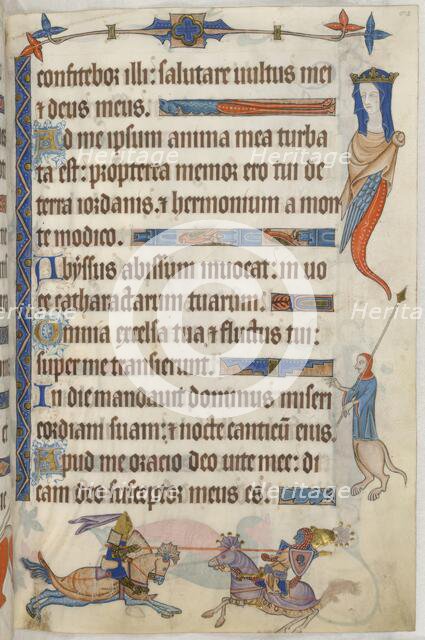 confitebor illi: salutare uultus mei
⁊ deus meus.
Ad me ipsum anima mea turba
ta est: propterea memor ero tui de
terra iordanis. ⁊ hermonium a mon
te modico.
Abyssus abissum inuocat: in uo
ce catharactarum tuarum.
Omnia excelsa tua ⁊ fluctus tui:
super me transierunt.
In die mandauit dominus miseri
cordiam suam: ⁊ nocte canticū eius.
Apud me oracio deo uite mee: di
cam deo susceptor meus es.
Heritage
Heritage
Heritage
Heritage
Heritage
Heritage